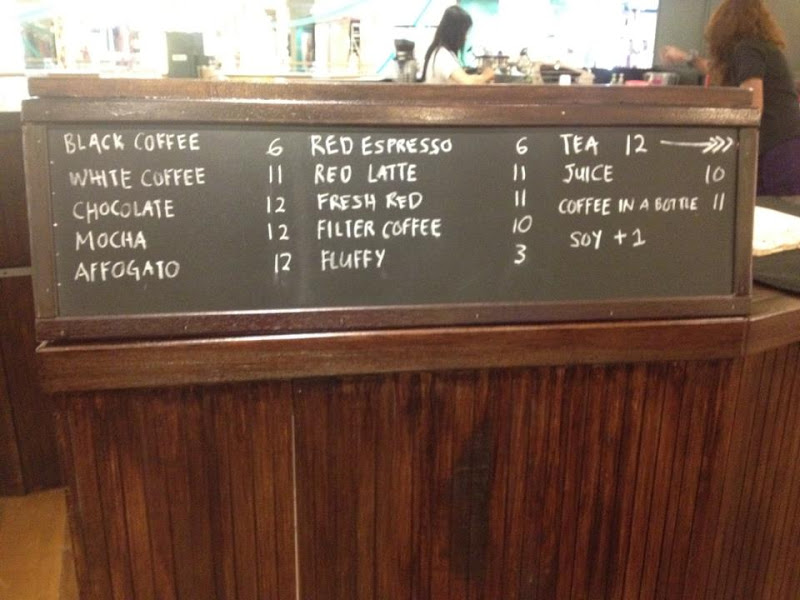 BLACK COFFEE 6
WHITE COFFEE 11
CHOCOLATE 12
MOCHA 12
AFFOGATO 12
RED ESPRESSO 6
RED LATTE 11
FRESH RED 11
FILTER COFFEE 10
FLUFFY 3
TEA 12
JUICE 10
COFFEE IN A BOTTLE 11
SOY +1